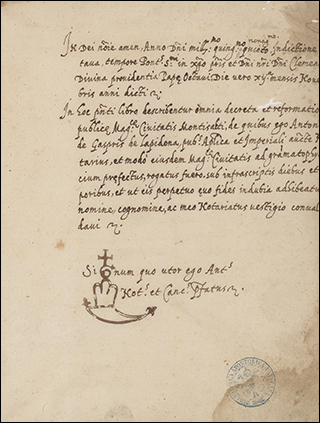 In Dei nõie amen Anno Dñi mill.mo quing.mo nonag.mo quinto indictione
tava, tempore Pont.s S.mi in xpõ pris et Dñi nri Dñi Clemen
Divina providentia Pape Octavi, Die vero xv mensis Nove
bris anni dicti
In hoc pñti libro describentur omnia decreta et reformatio
publice Mag.ce Civitatis Montisalti, de quibus ego Anton
de Gasparis de Lapidona, pub. Aplica et Imperiali aucte N
tarius, et modo eiusdem Mag.ce Civitatis ad
cium prefectus, rogatus fuero, sub infrascriptis diebus et
poribus, et ut eis perpetuo fides indubia adhibeatur
nomine, cognomine, ac meo Notariatus vestigio conval
davi
Signum quo utor ego Ant.s
Not.s et Canc.s pfatus